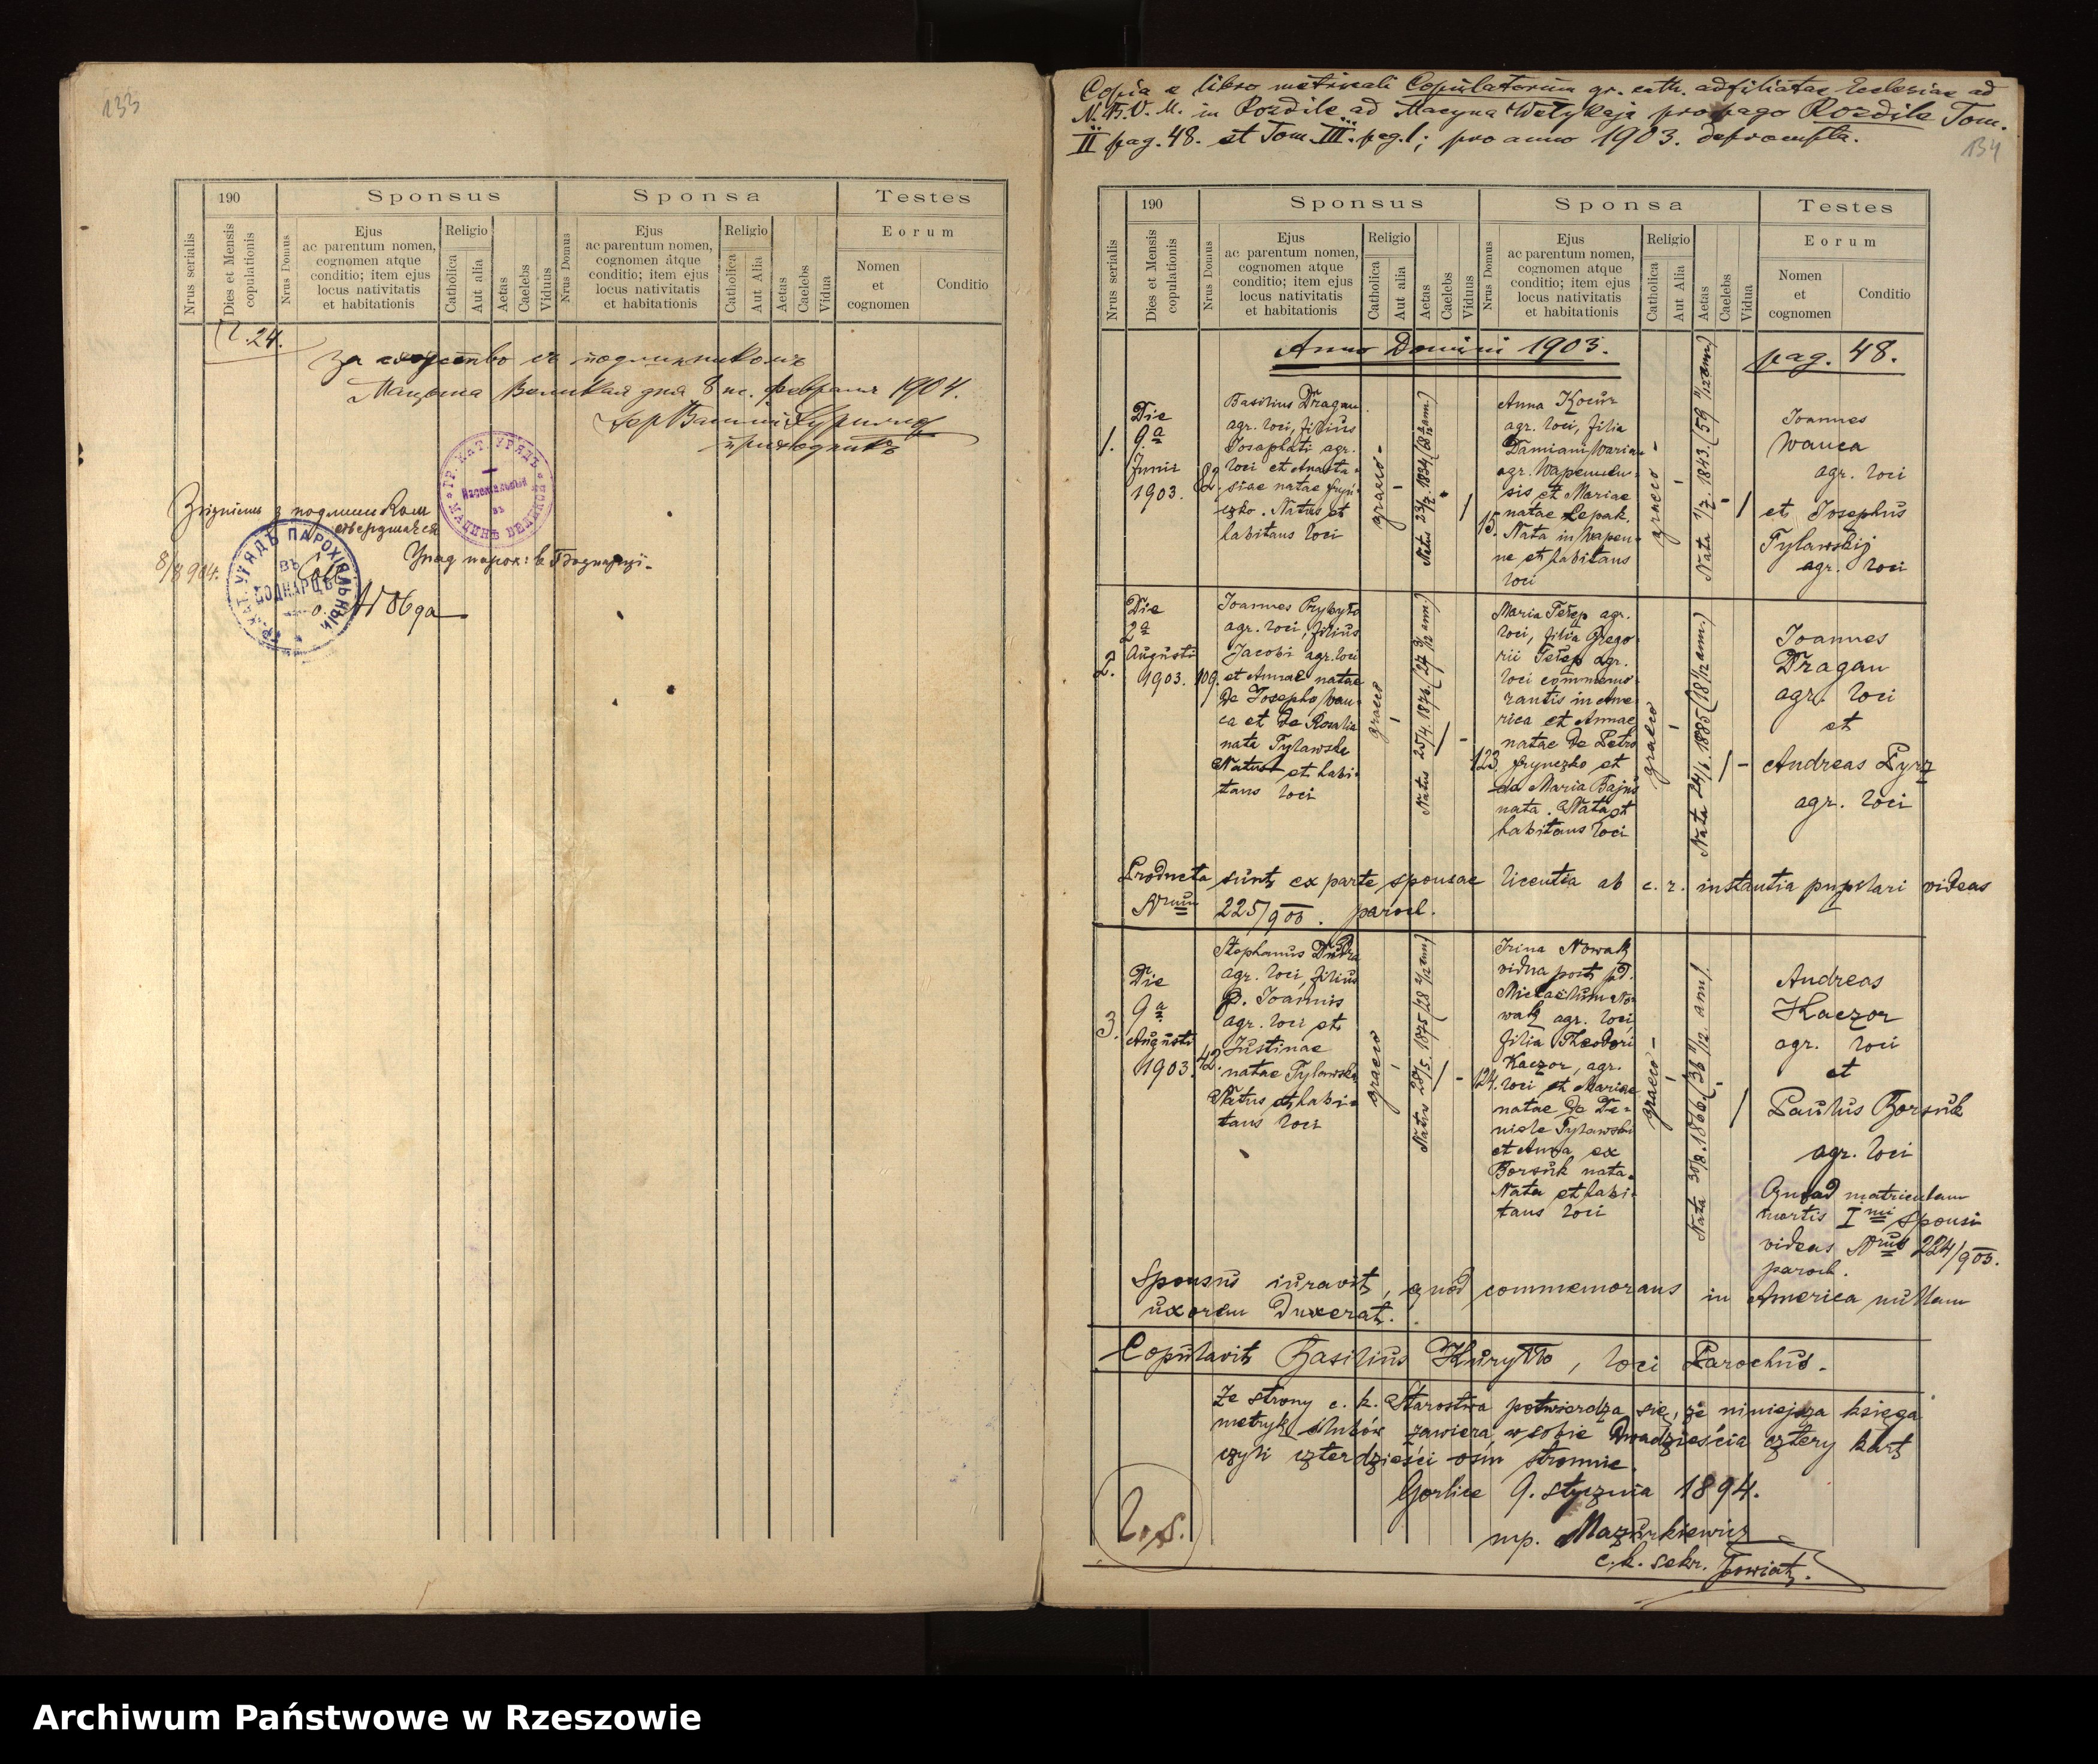 133
190
Sponsus
Sponsa
Testes
Nrus serialis
Dies et Mensis copulationis
Nrus Domus
Ejus
ac parentum nomen,
cognomen atque
conditio; item ejus
locus nativitatis
et habitationis
Religio
Catholica
Aut alia
Aetas
Caelebs
Viduus
Nrus Domus
Ejus
ac parentum nomen,
cognomen atque
conditio; item ejus
locus nativitatis
et habitationis
Religio
Catholica
Aut Alia
Aetas
Caelebs
Vidua
Eorum
Nomen
et
cognomen
Conditio
24.
За сходство съ подлинникомъ
Мацына Великая дня 8 февраля 1904.
Copia e libro metricali Copulatorum gr. cath. adfiliatae Ecclesiae ad
N. B. V. M. in Rozdile ad Macyna Welykaja pro pago Rozdile Tom.
II pag. 48. et Tom. III. pag. 1; pro anno 1903. deprompta.
134
190
Sponsus
Sponsa
Testes
Nrus serialis
Dies et Mensis copulationis
Nrus Domus
Ejus
ac parentum nomen,
cognomen atque
conditio; item ejus
locus nativitatis
et habitationis
Religio
Catholica
Aut alia
Aetas
Caelebs
Viduus
Nrus Domus
Ejus
ac parentum nomen,
cognomen atque
conditio; item ejus
locus nativitatis
et habitationis
Religio
Catholica
Aut Alia
Aetas
Caelebs
Vidua
Eorum
Nomen
et
cognomen
Conditio
Anno Domini 1903.
pag. 48.
1.
Die
9a
Junii
1903.
82.
Basilius Dragan
agr. loci, filius
Josaphati agr.
loci et Anasta-
siae natae
Natus et
habitans loci
graeco
15.
Anna Kocur
agr. loci, filia
Damiani Warian
agr. Wapennen-
sis et Mariae
natae Lepak.
Nata in Wapen-
ne et habitans
loci
graeco
Joannes
Wanca
agr. loci
et Josephus
Tylawskij
agr. loci
2.
Die
2a
Augusti
1903.
109.
Joannes Prybyło
agr. loci, filius
Jacobi agr. loci
et Annae natae
de Josepho Wan-
ca et de Rosalia
nata Tylawska
Natus et habi-
tans loci
graeco
123.
Maria Telep agr.
loci, filia Grego-
rii Telep agr.
loci commemo-
rantis in Ame-
rica et Annae
natae de Petro
Hrynczko et
de Maria Bajus
nata. Nata et
habitans loci
graeco
Joannes
Dragan
agr. loci
et
Andreas Pyrz
agr. loci
Producta sunt ex parte sponsae licentia ab c. r. instantia pupilari videas
Nrum 225/903. paroch.
3.
Die
9a
Augusti
1903.
42.
Stephanus
agr. loci, filius
p. Joannis
agr. loci et
Justinae
natae Tylawska
Natus et habi-
tans loci
graeco
124.
Irina Nowak
vidua post pd.
Michaelum No-
wak agr. loci,
filia Theodori
Kaczor, agr.
loci et Mariae
natae de Da-
niele Tylawski
et Anna ex
Borsuk nata.
Nata et habi-
tans loci
graeco
Andreas
Kaczor
agr. loci
et
Paulus Borsuk
agr. loci
Quoad matriculam
mortis Imi sponsi
videas Nrum 224/903.
paroch.
Sponsus iuravit, quod commemorans in America nullam
uxorem duxerat.
Copulavit Basilius Kuryłło, loci Parochus.
Ze strony c. k. Starostwa potwierdza się, że niniejsza księga
metryk ślubów zawiera w sobie dwadzieścia cztery kart
czyli czterdzieści ośm stronnic.
Gorlice 9. stycznia 1894.
L.S.
mp. Mazurkiewicz
c. k. sekr. Powiat.
Archiwum Państwowe w Rzeszowie